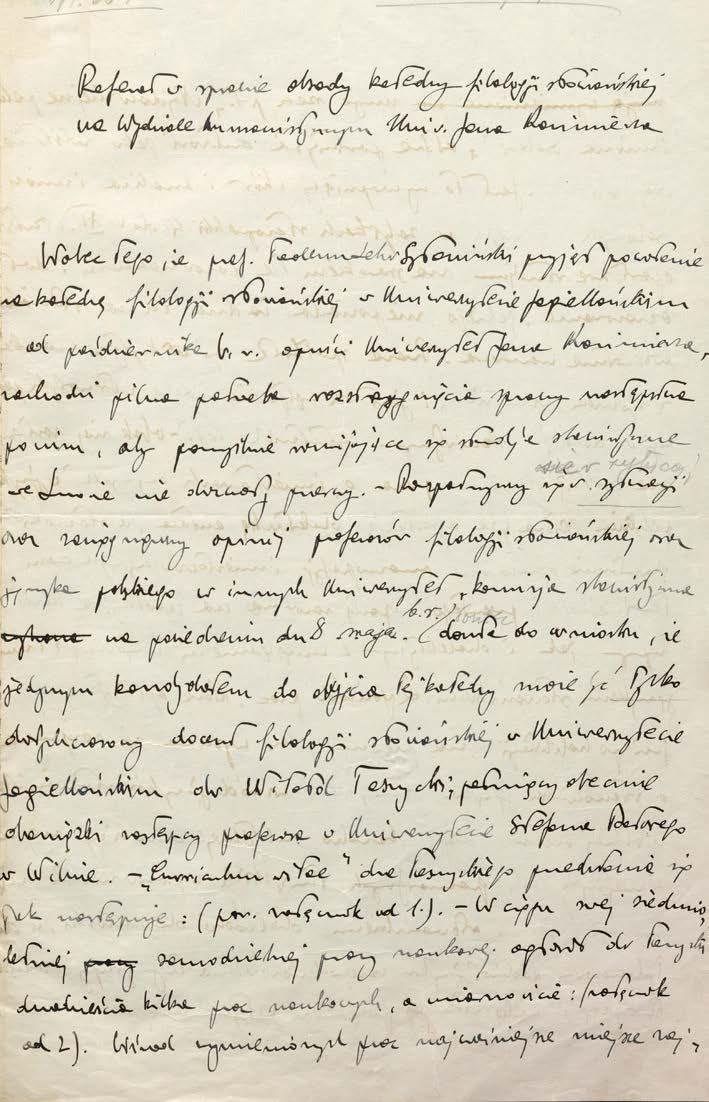 Referat w sprawie obsady katedry filologji słowiańskiej
na Wydziale humanistycznym Univ. Jana Kazimierza
Wobec tego, że prof. Tadeusz Lehr-Spławiński przyjął powołanie
na katedrę filologji słowiańskiej w Uniwersytecie Jagiellońskim
od października b. r. opuści Uniwersytet Jana Kazimierza,
zachodzi pilna potrzeba rozstrzygnięcia sprawy następstwa
po nim, aby pomyślnie rozwijające się studja slawistyczne
we Lwowie nie doznały przerwy. – Rozpatrzywszy się w sytuacji
oraz zasięgnąwszy opinji profesorów filologji słowiańskiej oraz
języka polskiego w innych Uniwersytet., komisja slawistyczna
na posiedzeniu dn 8 maja b.r. doszła do wniosku, że
jedynym kandydatem do objęcia tej katedry może być tylko
dotychczasowy docent filologji słowiańskiej w Uniwersytecie
Jagiellońskim dr Witold Taszycki, pełniący obecnie
obowiązki zastępcy profesora w Uniwersytecie Stefana Batorego
w Wilnie. – „Curriculum vitae" dra Taszyckiego przedstawia się
jak następuje: (por. załącznik ad 1.). – W ciągu swej siedmio-
letniej pracy samodzielnej pracy naukowej ogłosił dr Taszycki
dwadzieścia kilka prac naukowych, a mianowicie: (załącznik
ad 2). Wśród wymienionych prac najważniejsze miejsce zaj-